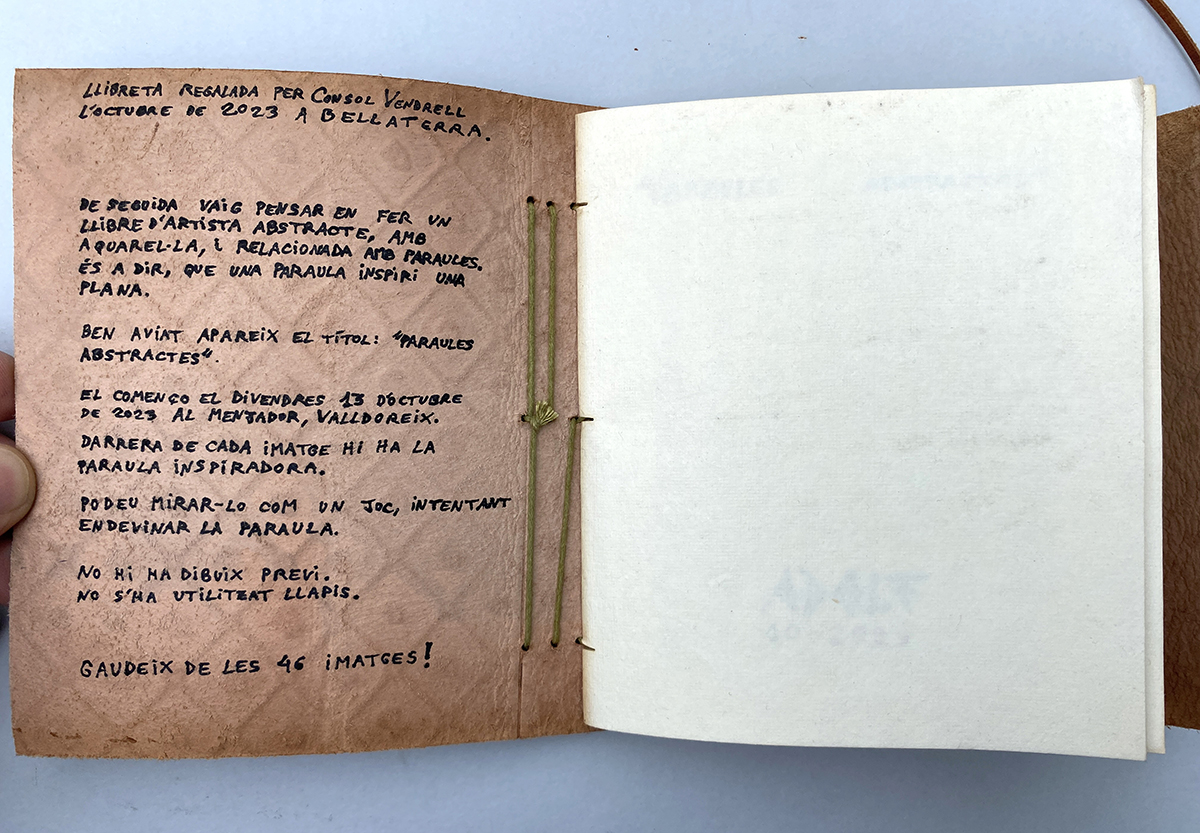 LLIBRETA REGALADA PER CONSOL VENDRELL
L'OCTUBRE DE 2023 A BELLATERRA.
DE SEGUIDA VAIG PENSAR EN FER UN
LLIBRE D'ARTISTA ABSTRACTE, AMB
AQUAREL·LA, I RELACIONADA AMB PARAULES.
ÉS A DIR, QUE UNA PARAULA INSPIRI UNA
PLANA.
BEN AVIAT APAREIX EL TÍTOL: "PARAULES
ABSTRACTES".
EL COMENÇO EL DIVENDRES 13 D'OCTUBRE
DE 2023 AL MENJADOR, VALLDOREIX.
DARRERA DE CADA IMATGE HI HA LA
PARAULA INSPIRADORA.
PODEU MIRAR-LO COM UN JOC, INTENTANT
ENDEVINAR LA PARAULA.
NO HI HA DIBUIX PREVI.
NO S'HA UTILITZAT LLAPIS.
GAUDEIX DE LES 46 IMATGES!